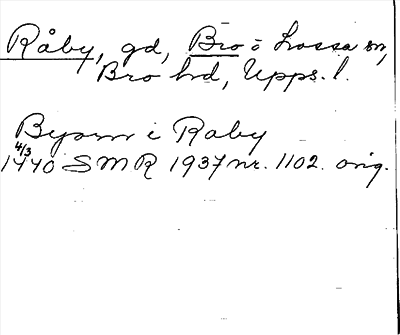 Råby, gd, Bro o Lossa sn,
Bro hd, Upps. l.
Byørn i Raby
4/3
1440 SMR 1937 nr. 1102. orig.